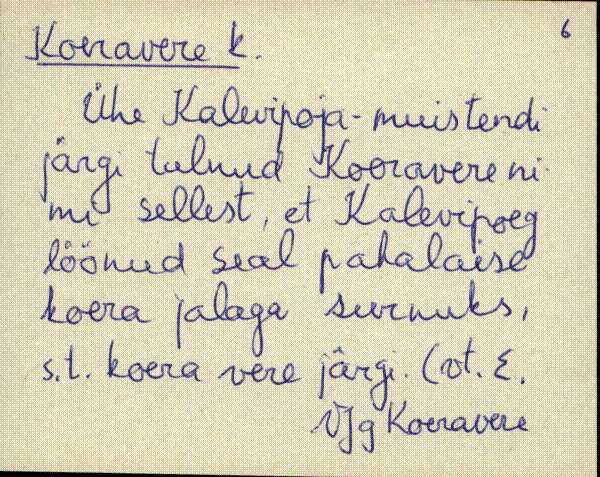 6
Koeravere k.
Ühe Kalevipoja-muistendi
järgi tulnud Koeravere ni-
mi sellest, et Kalevipoeg
löönud seal pahalaise
koera jalaga surnuks,
s.t. koera vere järgi. (vt. E.
VJg Koeravere